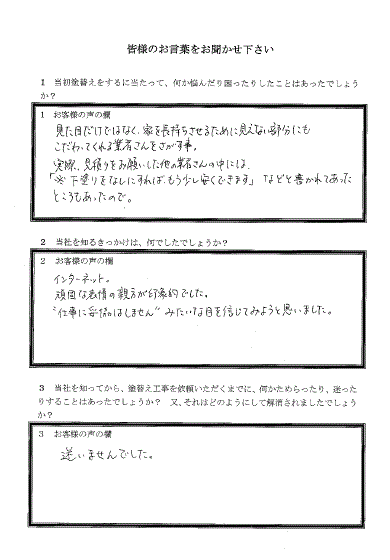 皆様のお言葉をお聞かせ下さい
1 当初塗替えをするに当たって、何か悩んだり困ったりしたことはあったでしょう
か?
1 お客様の声の欄
見た目だけではなく、家を長持ちさせるために見えない部分にも
こだわってくれる業者さんをさがす事。
実際、見積りをお願いした他の業者さんの中には、
「※下塗りをなしにすれば、もう少し安くできます」などと書かれてあった
ところもあったので。
2 当社を知るきっかけは、何でしたでしょうか?
2 お客様の声の欄
インターネット。
頑固な表情の親方が印象的でした。
"仕事に妥協はしません" みたいな目を信じてみようと思いました。
3 当社を知ってから、塗替え工事を依頼いただくまでに、何かためらったり、迷った
りすることはあったでしょうか? 又、それはどのようにして解消されましたでしょう
か?
3 お客様の声の欄
迷いませんでした。